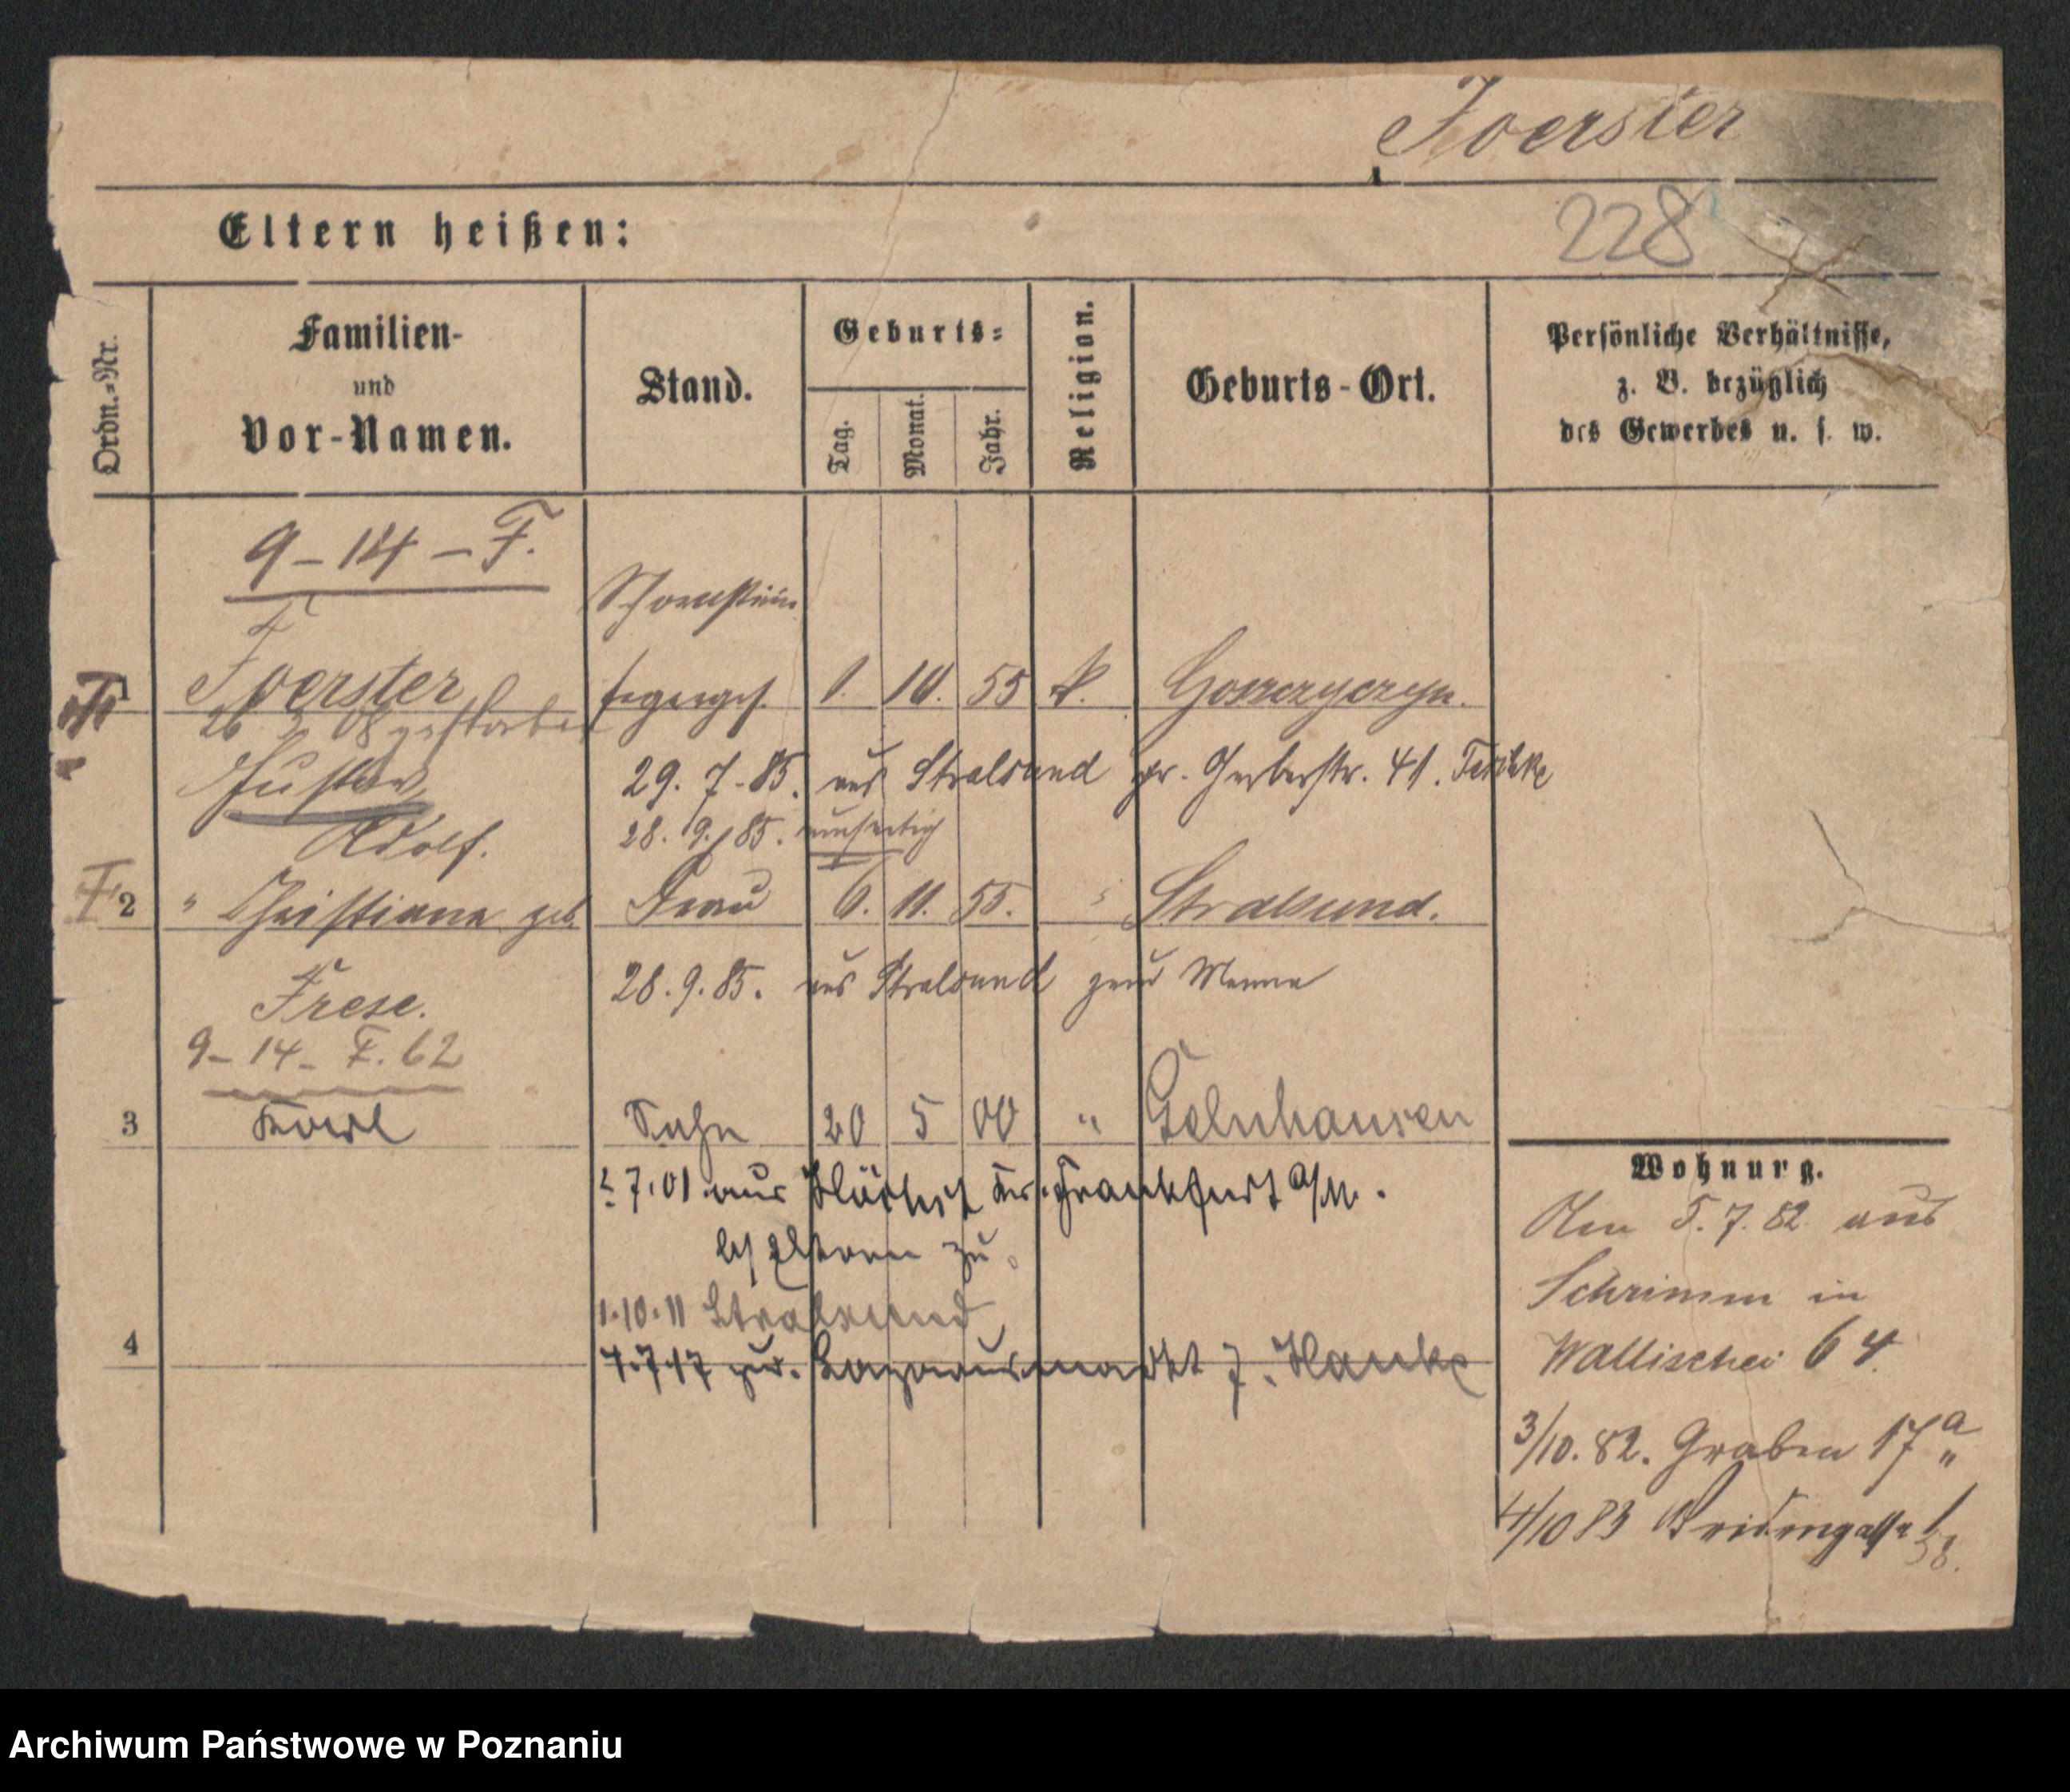 Foerster
Eltern heißen:
228
Ordn.-Nr.
Familien-
und
Vor-Namen.
Stand.
Geburts-
Tag.
Monat.
Jahr.
Religion.
Geburts-Ort.
Persönliche Verhältnisse,
z. B. bezüglich
des Gewerbes u. s. w.
9-14-F.
Schornstein
1 Foerster fegerges. 1. 10. 55 k. Gorzyczyn.
26 3 08 gestorben
Gustav 29. 7-85. aus Stralsund gr. Gerberstr. 41.
Adolf. 28. 9. 85.
2 " Christiane geb. Frau 6. 11. 55. Stralsund.
Frese. 28. 9. 85. aus Stralsund zum Manne
9-14-F. 62
3 Karl Sohn 20 5 00 " Gelnhausen
7.01 aus Höchst Kr. Frankfurt a/M.
Eltern zu
1.10.11 Stralsund
4
4.7.17 zur. Lazarusmarkt 7. Hanke
Wohnung.
Am 5. 7. 82. aus
Schrimm in
Wallischei 64.
3/10. 82. Graben 17 a
4/10 83
Archiwum Państwowe w Poznaniu